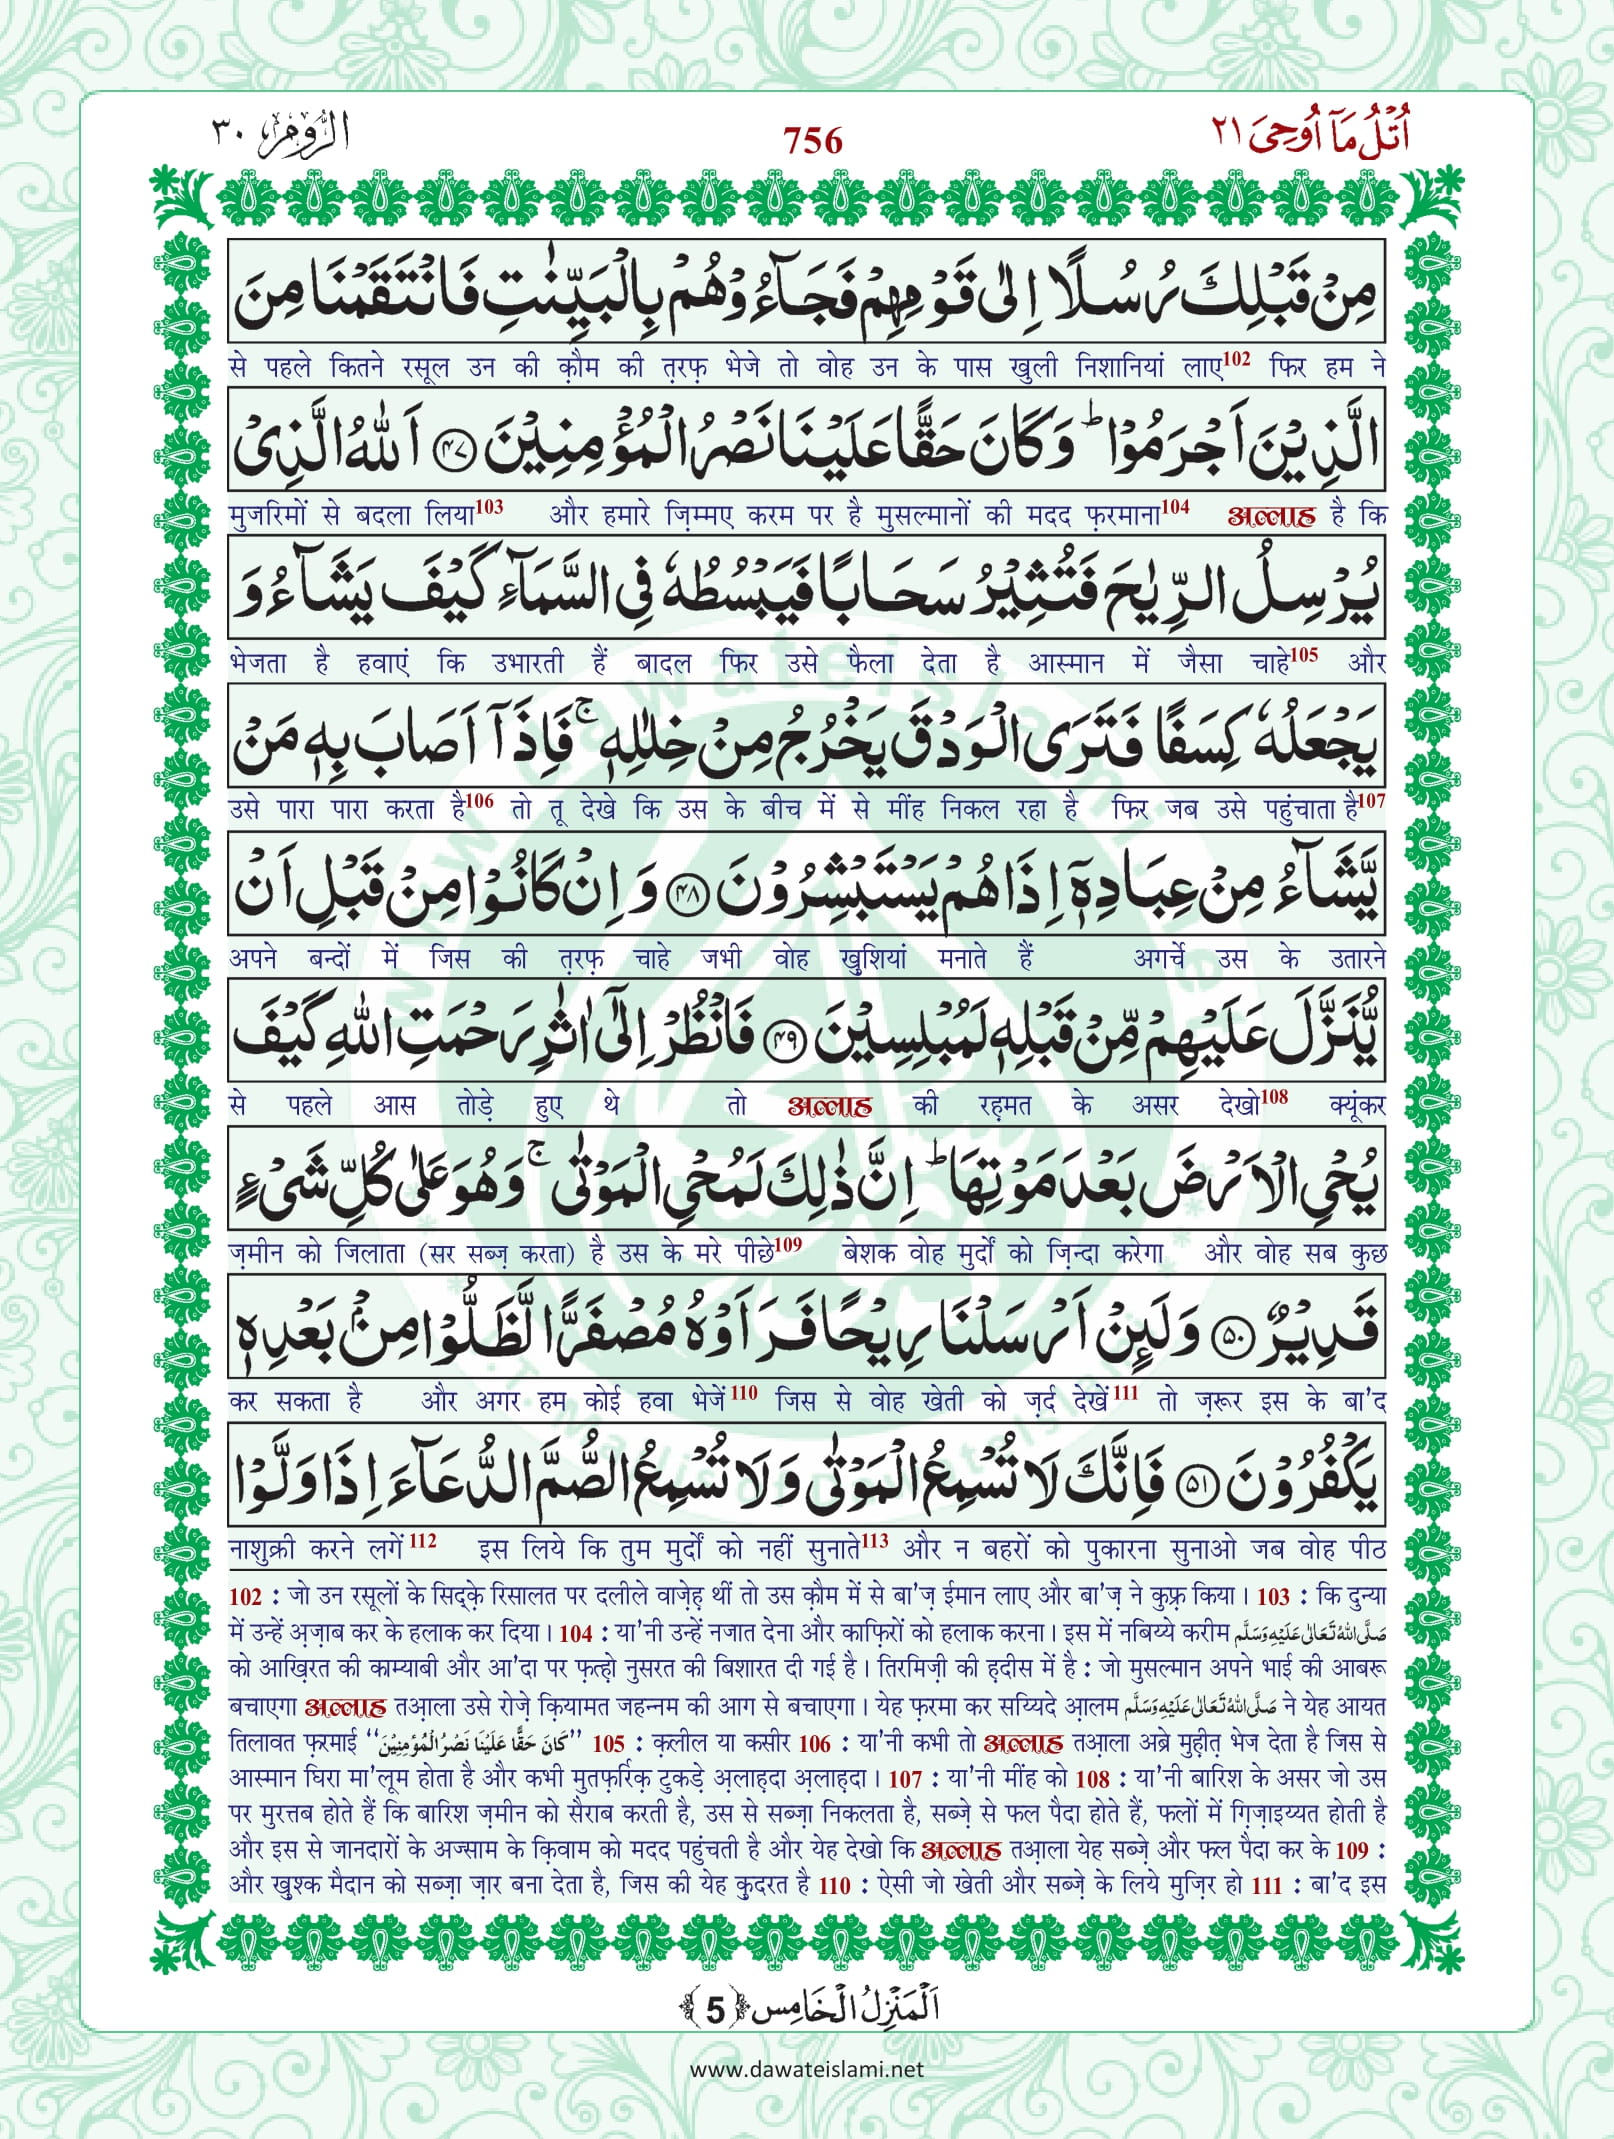 اُتْلُ مَاۤ اُوْحِیَ ٢١ 756 الرُّوْم ٣٠
مِنْ قَبْلِكَ رُسُلًا اِلٰى قَوْمِهِمْ فَجَآءُوْهُمْ بِالْبَیِّنٰتِ فَانْتَقَمْنَا مِنَ
से पहले कितने रसूल उन की क़ौम की त़रफ़ भेजे तो वोह उन के पास खुली निशानियां लाए102 फिर हम ने
الَّذِیْنَ اَجْرَمُوْاؕ وَ كَانَ حَقًّا عَلَیْنَا نَصْرُ الْمُؤْمِنِیْنَ ﴿۴۷﴾ اَللّٰهُ الَّذِیْ
मुजरिमों से बदला लिया103 और हमारे ज़िम्मए करम पर है मुसल्मानों की मदद फ़रमाना104 अल्लाह है कि
یُرْسِلُ الرِّیٰحَ فَتُثِیْرُ سَحَابًا فَیَبْسُطُهٗ فِی السَّمَآءِ كَیْفَ یَشَآءُ وَ
भेजता है हवाएं कि उभारती हैं बादल फिर उसे फैला देता है आस्मान में जैसा चाहे105 और
یَجْعَلُهٗ كِسَفًا فَتَرَى الْوَدْقَ یَخْرُجُ مِنْ خِلٰلِهٖۚ فَاِذَاۤ اَصَابَ بِهٖ مَنْ
उसे पारा पारा करता है106 तो तू देखे कि उस के बीच में से मींह निकल रहा है फिर जब उसे पहुंचाता है107
یَّشَآءُ مِنْ عِبَادِهٖۤ اِذَا هُمْ یَسْتَبْشِرُوْنَ ﴿۴۸﴾ وَ اِنْ كَانُوْا مِنْ قَبْلِ اَنْ
अपने बन्दों में जिस की त़रफ़ चाहे जभी वोह खुशियां मनाते हैं अगर्चे उस के उतारने
یُّنَزَّلَ عَلَیْهِمْ مِّنْ قَبْلِهٖ لَمُبْلِسِیْنَ ﴿۴۹﴾ فَانْظُرْ اِلٰۤى اٰثٰرِ رَحْمَتِ اللّٰهِ كَیْفَ
से पहले आस तोड़े हुए थे तो अल्लाह की रह़मत के असर देखो108 क्यूंकर
یُحْیِ الْاَرْضَ بَعْدَ مَوْتِهَاؕ اِنَّ ذٰلِكَ لَمُحْیِ الْمَوْتٰىۚ وَ هُوَ عَلٰى كُلِّ شَیْءٍ
ज़मीन को जिलाता (सर सब्ज़ करता) है उस के मरे पीछे109 बेशक वोह मुर्दों को ज़िन्दा करेगा और वोह सब कुछ
قَدِیْرٌ ﴿۵۰﴾ وَ لَىِٕنْ اَرْسَلْنَا رِیْحًا فَرَاَوْهُ مُصْفَرًّا لَّظَلُّوْا مِنْۢ بَعْدِهٖ
कर सकता है और अगर हम कोई हवा भेजें110 जिस से वोह खेती को ज़र्द देखें111 तो ज़रूर इस के बा'द
یَكْفُرُوْنَ ﴿۵۱﴾ فَاِنَّكَ لَا تُسْمِعُ الْمَوْتٰى وَ لَا تُسْمِعُ الصُّمَّ الدُّعَآءَ اِذَا وَلَّوْا
नाशुक्री करने लगें112 इस लिये कि तुम मुर्दों को नहीं सुनाते113 और न बहरों को पुकारना सुनाओ जब वोह पीठ
102 : जो उन रसूलों के सिद्क़े रिसालत पर दलीले वाज़ेह़ थीं तो उस क़ौम में से बा'ज़ ईमान लाए और बा'ज़ ने कुफ़्र किया । 103 : कि दुन्या
में उन्हें अ़ज़ाब कर के हलाक कर दिया । 104 : या'नी उन्हें नजात देना और काफ़िरों को हलाक करना । इस में नबिय्ये करीम صَلَّى اللهُ تَعَالٰى عَلَيْهِ وَسَلَّم
को आख़िरत की काम्याबी और आ'दा पर फ़त्ह़ो नुसरत की बिशारत दी गई है । तिरमिज़ी की ह़दीस में है : जो मुसल्मान अपने भाई की आबरू
बचाएगा अल्लाह तआ़ला उसे रोज़े क़ियामत जहन्नम की आग से बचाएगा । येह फ़रमा कर सय्यिदे आ़लम صَلَّى اللهُ تَعَالٰى عَلَيْهِ وَسَلَّم ने येह आयत
तिलावत फ़रमाई ‘‘كَانَ حَقًّا عَلَيْنَا نَصْرُ الْمُؤْمِنِيْنَ’’ 105 : क़लील या कसीर 106 : या'नी कभी तो अल्लाह तआ़ला अब्रे मुह़ीत़ भेज देता है जिस से
आस्मान घिरा मा'लूम होता है और कभी मुतफ़र्रिक़ टुकड़े अ़लाह़दा अ़लाह़दा । 107 : या'नी मींह को 108 : या'नी बारिश के असर जो उस
पर मुरत्तब होते हैं कि बारिश ज़मीन को सैराब करती है, उस से सब्ज़ा निकलता है, सब्ज़े से फल पैदा होते हैं, फलों में ग़िज़ाइय्यत होती है
और इस से जानदारों के अज्साम के क़िवाम को मदद पहुंचती है और येह देखो कि अल्लाह तआ़ला येह सब्ज़े और फल पैदा कर के 109 :
और खुश्क मैदान को सब्ज़ा ज़ार बना देता है, जिस की येह कुदरत है 110 : ऐसी जो खेती और सब्ज़े के लिये मुज़िर हो 111 : बा'द इस
اَلْمَنْزِلُ الْخَامِس ﴿5﴾
www.dawateislami.net